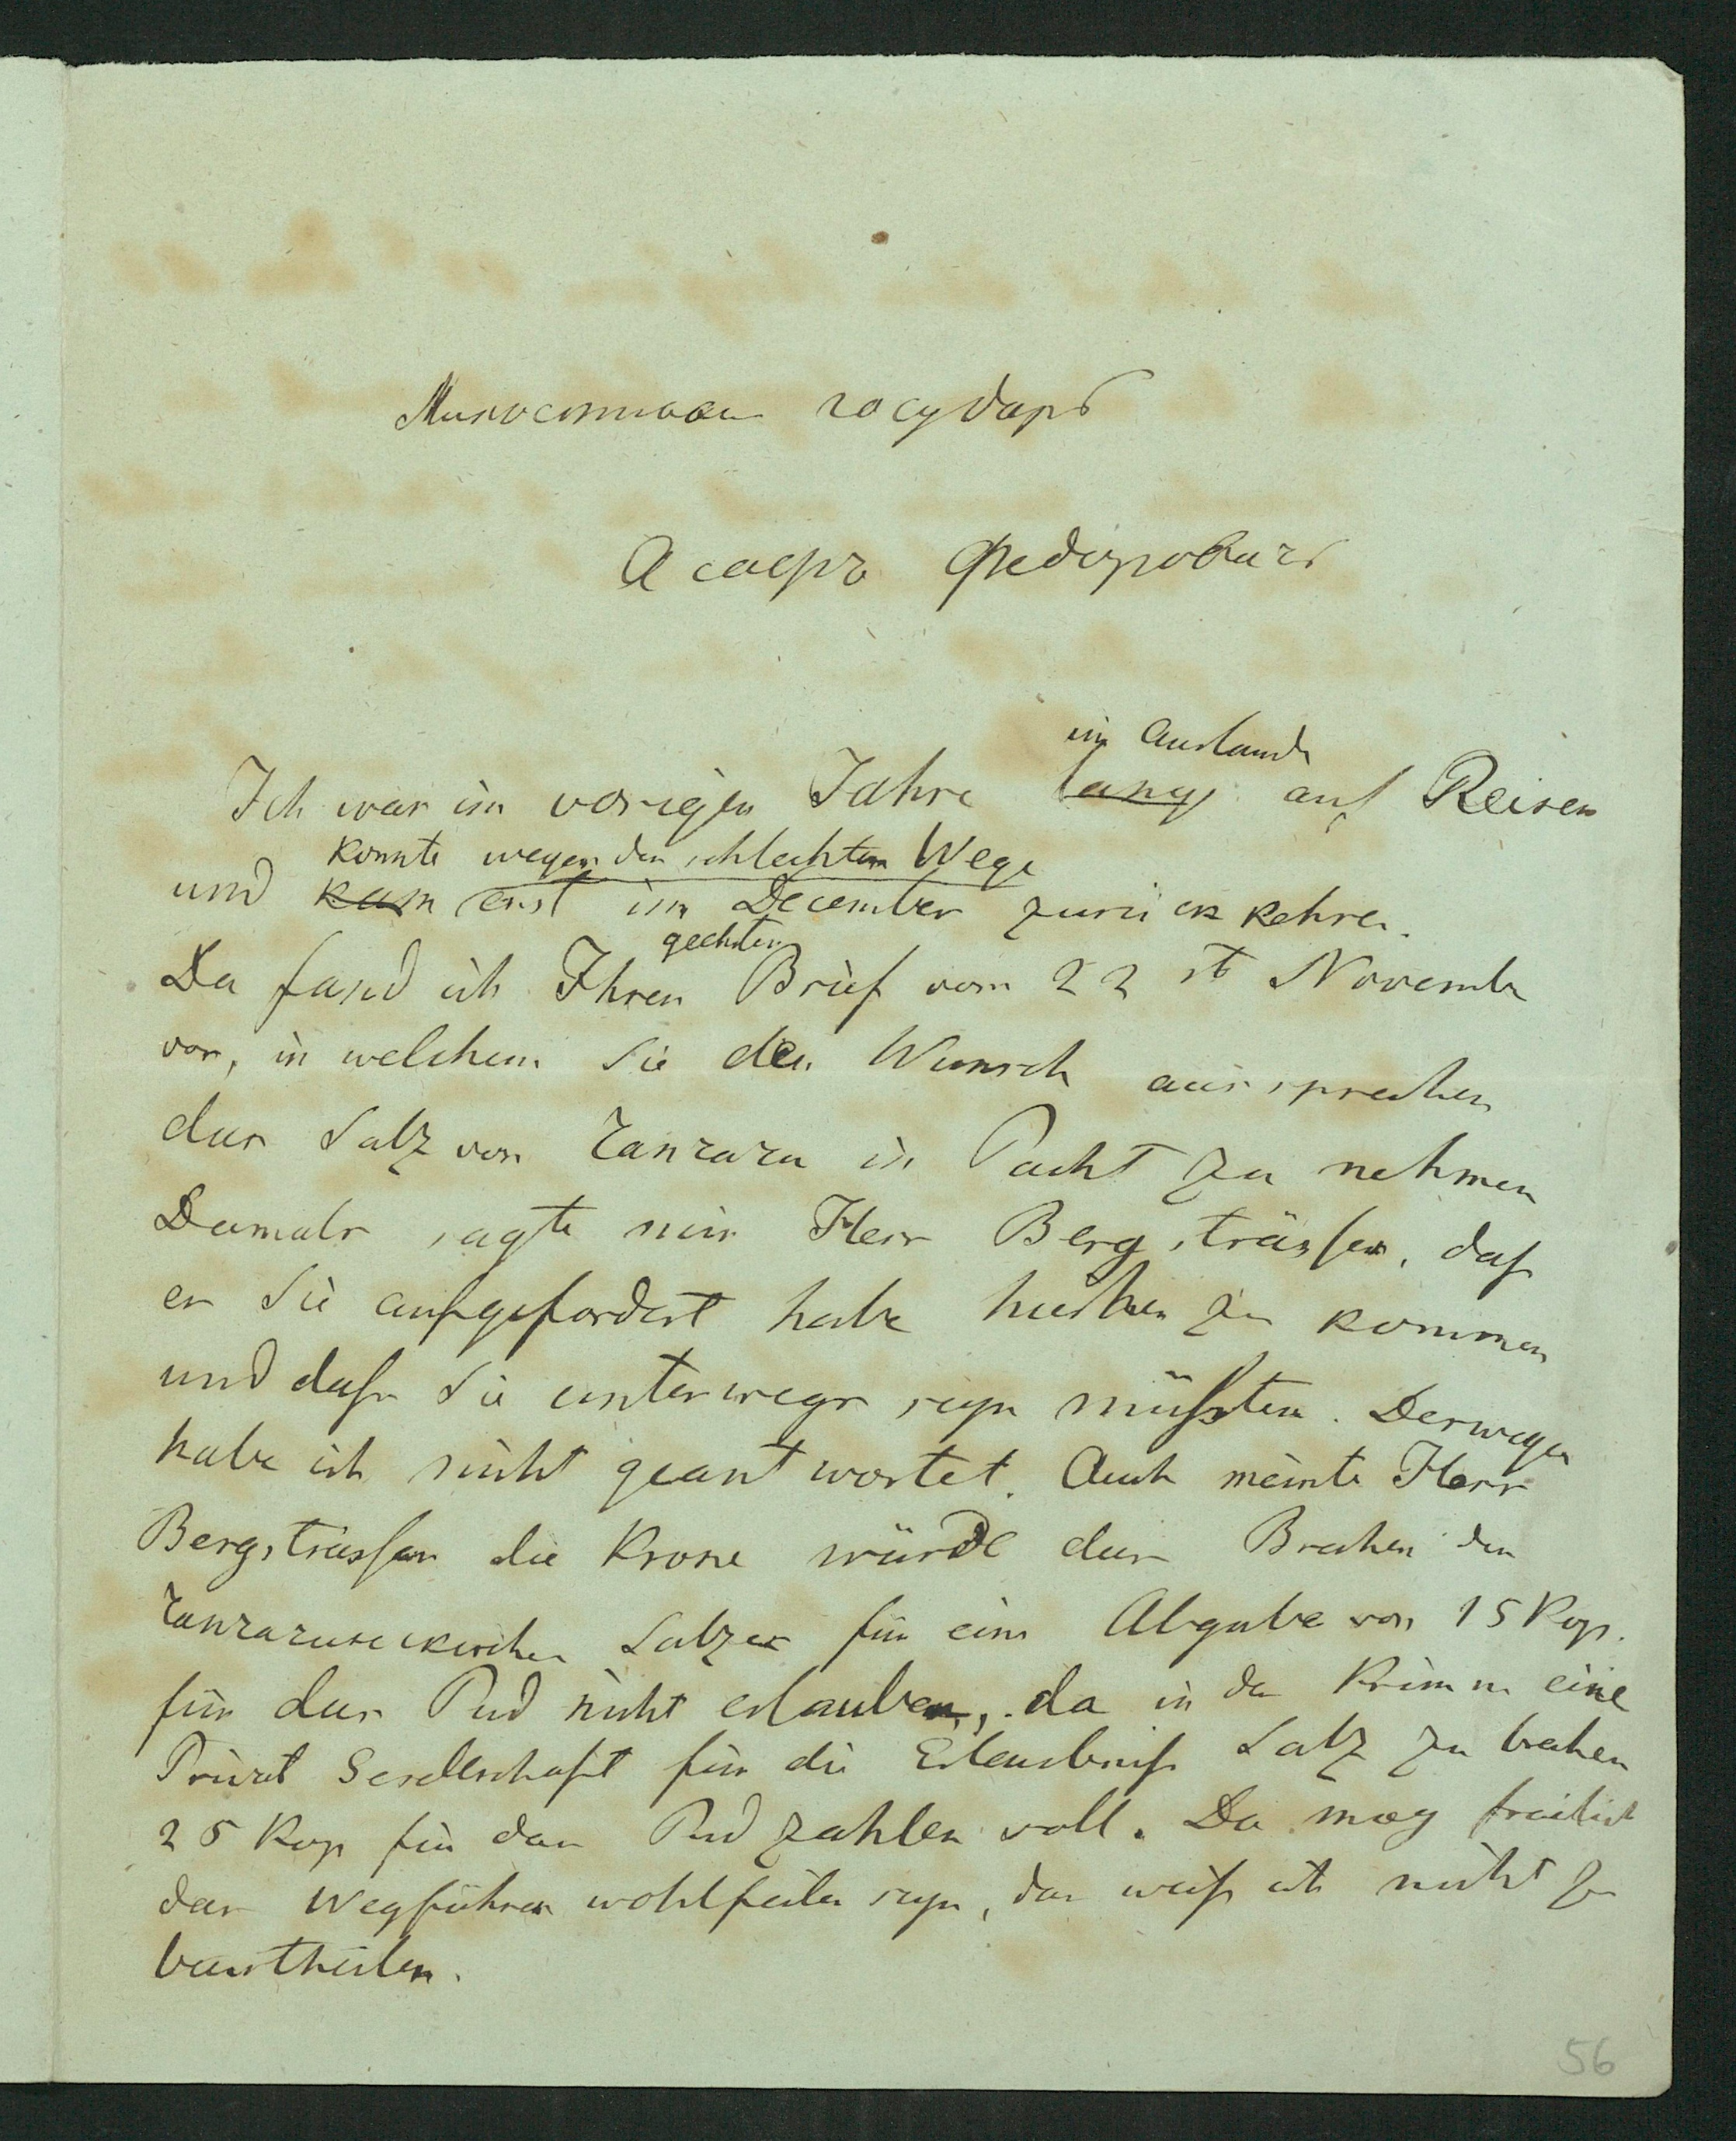 Милостивый государь
Асафъ Федоровичь
im Auslande
Ich war im vorigen Jahre lange auf Reisen
konnte wegen der schlechten Wege
und kam erst im December zurück kehren.
geehrten
Da fand ich Ihren Brief vom 22st November
vor, in welchem Sie den Wunsch aussprechen
das Salz von in Pacht zu nehmen
Damals sagte mir Herr Bergsträsser, daß
er Sie aufgefordert habe hierher zu kommen
und daß Sie unterwegs seyn müßten. Deswegen
habe ich nicht geantwortet. Auch meinte Herr
Bergsträsser die Krone würde das Brechen des
Salzes für eine Abgabe von 15 Kop.
für das Pud nicht erlauben, da in der Krimm eine
Privat Gesellschaft für die Erlaubniß Salz zu brechen
25 Kop für das Pud zahlen soll. Da mag freilich
das Wegführen wohlfeiler seyn, das weiß ich nicht zu
beurtheilen.
56